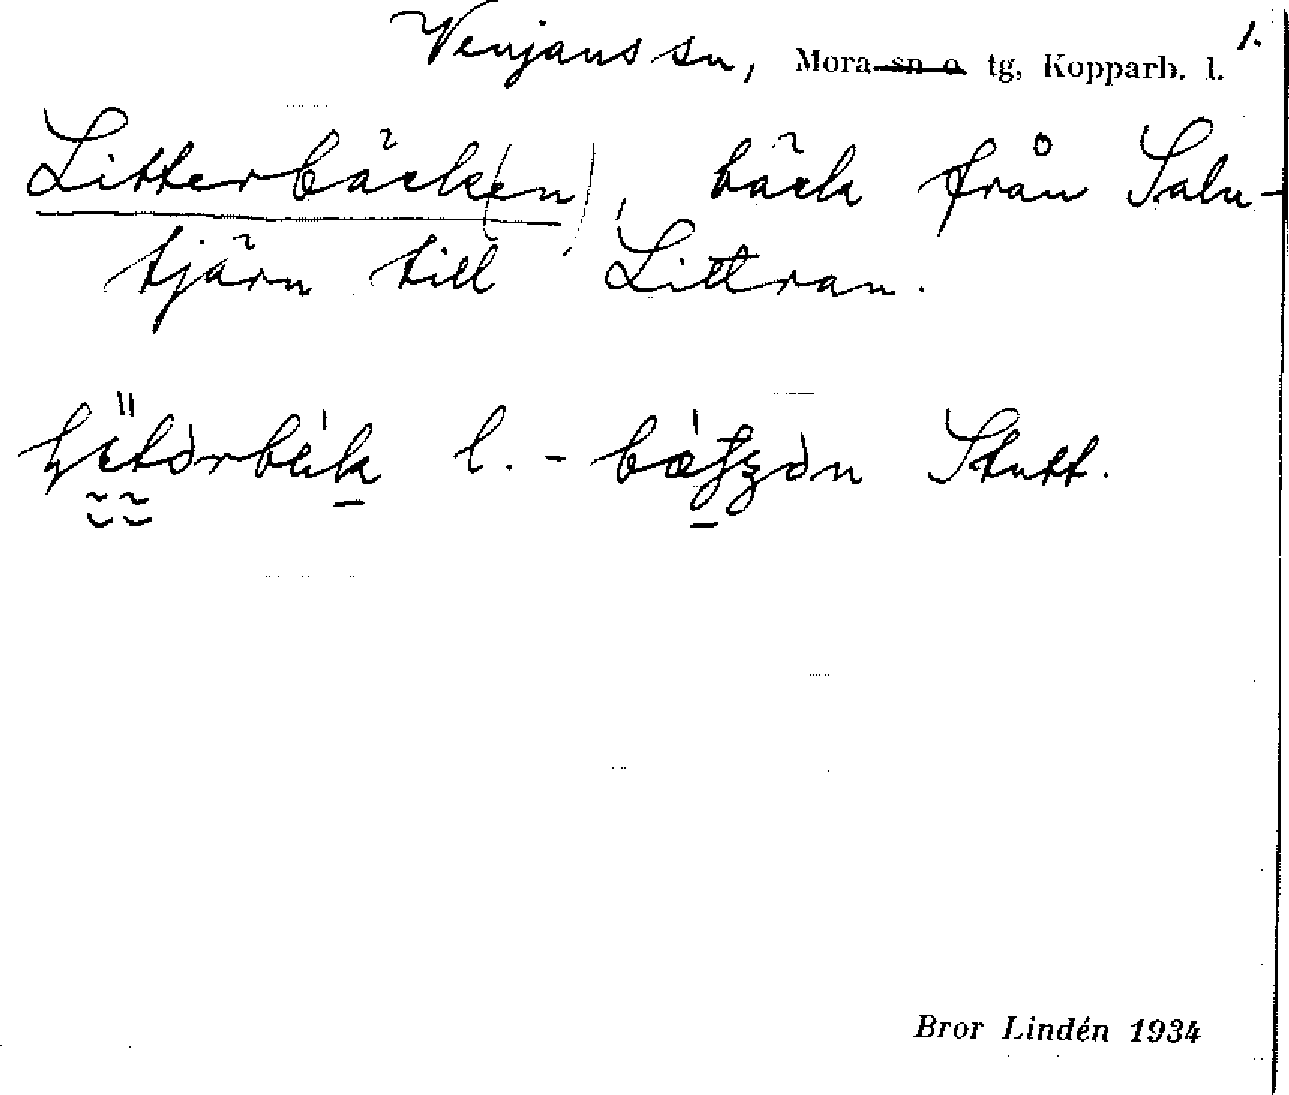 Venjans sn, Mora sn o. tg, Kopparb. l. 1.
Litterbäck(en), bäck från Salu-
tjärn till Littran.
l. - Stutt.
Bror Lindén 1934